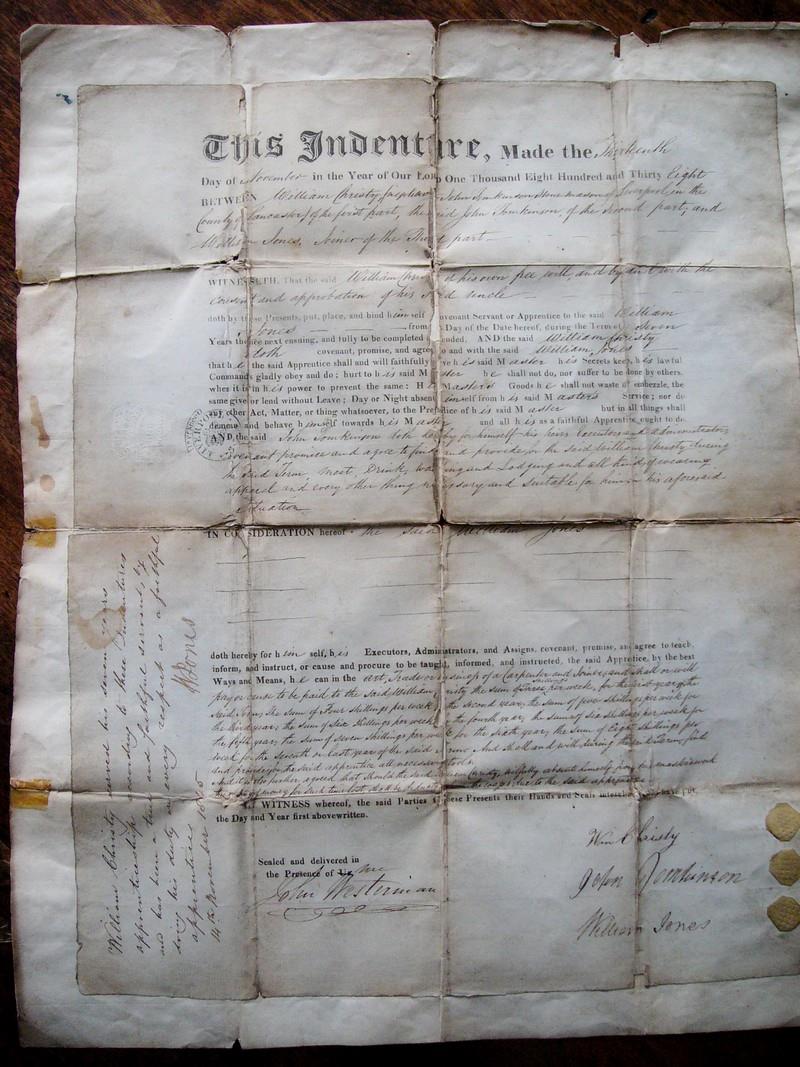 This Indenture, Made the Thirteenth
Day of November in the Year of Our Lord One Thousand Eight Hundred and Thirty Eight
BETWEEN William Christy John Tomkinson Stone mason of Liverpool in the
County of Lancaster of the first part, the said John Tomkinson, of the second part, and
William Jones, Joiner of the Third part
WITNESSETH. That the said William Christy of his own free will, and by and with the
consent and approbation of his said uncle
doth by these Presents, put, place, and bind himself Covenant Servant or Apprentice to the said William
Jones from Day of the Date hereof, during the Term of Seven
Years thence next ensuing, and fully to be completed ended. AND the said William Christy
doth covenant, promise, and agree to and with the said William Jones
that he the said Apprentice shall and will faithfully serve his said Master his Secrets keep, his lawful
Commands gladly obey and do; hurt to his said Master he shall not do, nor suffer to be done by others,
when it is in his power to prevent the same: His Master's Goods he shall not waste or embezzle, the
same give or lend without Leave; Day or Night absent himself from his said Masters Service; nor do
any other Act, Matter, or thing whatsoever, to the Prejudice of his said Master but in all things shall
demean and behave himself towards his Master and all his as a faithful Apprentice ought to do.
AND the said John Tomkinson doth hereby for himself his heirs Executors and administrators
Covenant promise and agree to find and provide for the said William Christy during
the said Term Meat, Drink, Washing and Lodging and all kind of wearing
apparel and every other thing necessary and suitable for him in his aforesaid
Situation
IN CONSIDERATION hereof the said William Jones
doth hereby for himself, his Executors, Administrators, and Assigns, covenant, promise, and agree to teach,
inform, and instruct, or cause and procure to be taught, informed, and instructed, the said Apprentice, by the best
Ways and Means, he can in the art, Trade or business of a Carpenter and Joiner, and shall or will
pay or cause to be paid to the said William Christy the sum of three Shillings per week, for the first year of the
said Term, the sum of Four shillings per week the second year, the sum of five shillings per week for
the third year, the sum of six shillings per week the fourth year, the sum of six shillings per week for
the fifth year, the sum of seven shillings per week for the sixth year, the sum of Eight shillings per
week for the seventh or last year of the said Term And shall and will during the said term, find
and provide for the said apprentice all necessary tools.
And it is further agreed that should the said William Christy, wilfully absent
IN WITNESS whereof, the said Parties to these Presents their Hands and Seals have put,
the Day and Year first abovewritten.
Sealed and delivered in
the Presence of Us me
John Westerman
Wm Christy
John Tomkinson
William Jones
William Christy served his seven years
apprenticeship according to these Indentures
and has been a true and faithful servant, by
doing his duty in every respect as a faithful
apprentice
W Jones
14th November 1845